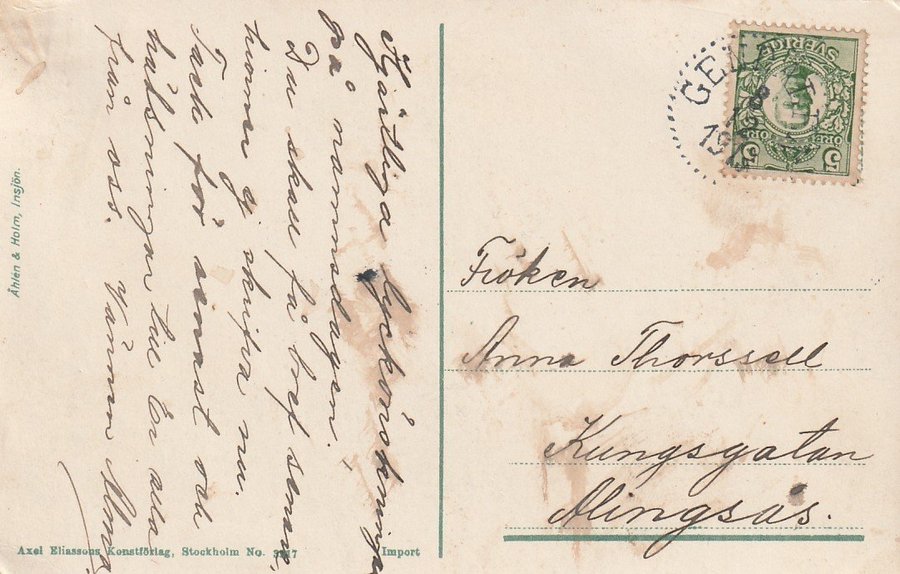 Hjärtliga lyckönskningar
på namnsdagen.
Du skall få bref senare,
hinner ej skrifva nu.
Tack för senast och
hälsningar till Er alla
från oss. Vännen Alma
Åhlén & Holm, Insjön.
Axel Eliassons Konstförlag, Stockholm No.
Import
SVERIGE
5 ÖRE 5
8
Fröken
Anna Thorssell
Kungsgatan
Alingsås.